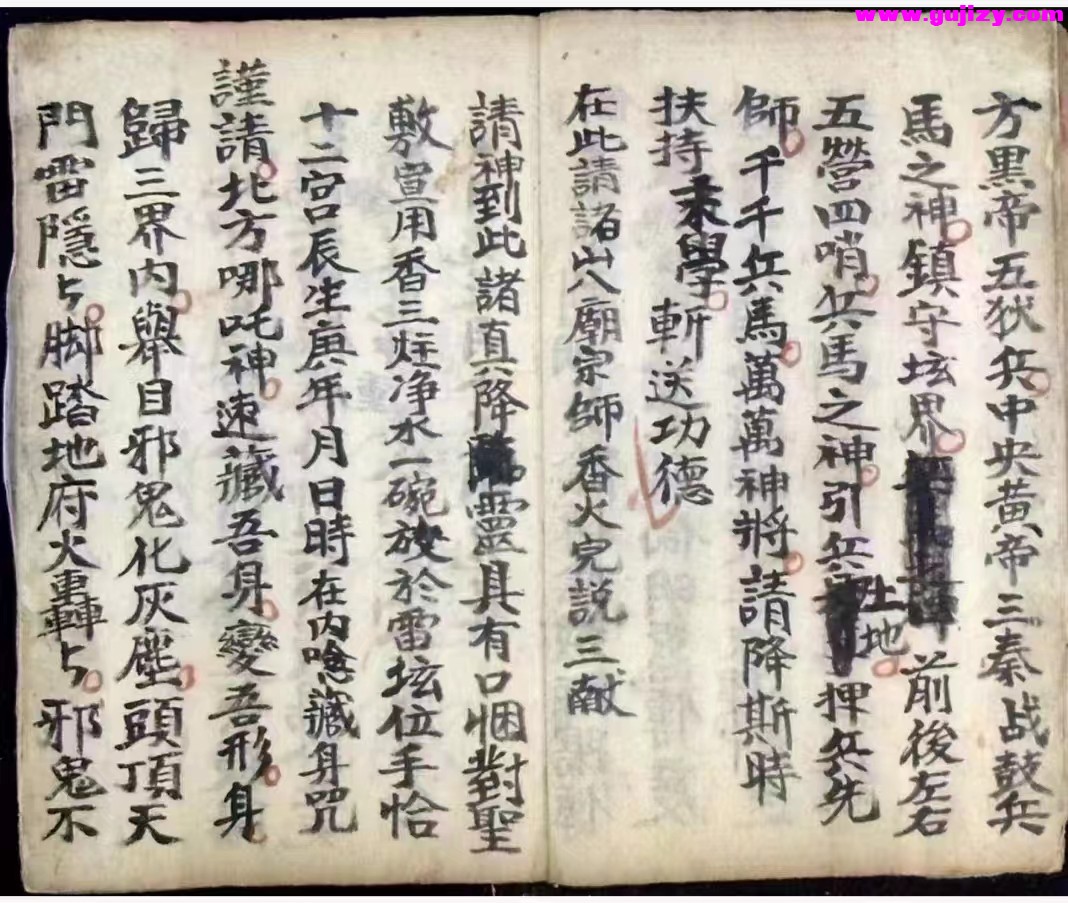 www.gujizy.com
方黑帝五狄兵中央黃帝三秦战鼓兵
馬之神鎮守坛界前後左右
五營四哨兵馬之神引兵土地押兵先
師千千兵馬萬萬神將請降斯時
扶持末學斬送功德
在此請諸山八廟宗師香火完説三献
請神到此諸真降臨靈具有口悃對聖
敷宣用香三炷净水一碗放於雷坛位手恰
十二宫辰生庚年月日時在内唸藏身咒
謹請北方哪吒神速藏吾身變吾形身
歸三界内舉目邪鬼化灰塵頭頂天
門雷隱々脚踏地府火轟々邪鬼不